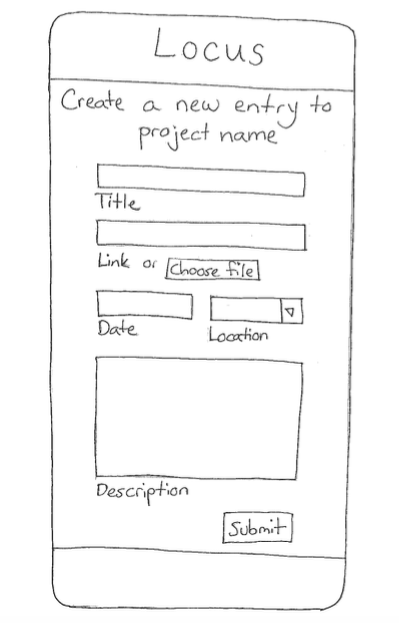 Locus
Create a new entry to
project name
Title
Link or Choose file
Date
Location
Description
Submit